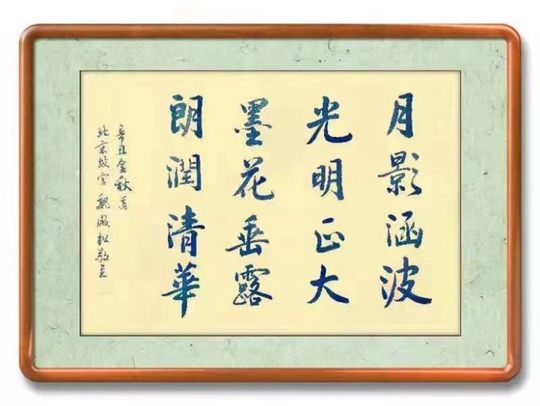 月影涵波
光明正大
墨花垂露
朗润清華
辛丑金秋首
北京故宫 魏淑松敬書